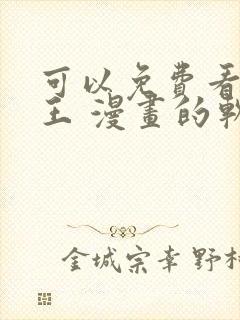 可以免費看
王 漫畫的軟
金城宗幸 野村